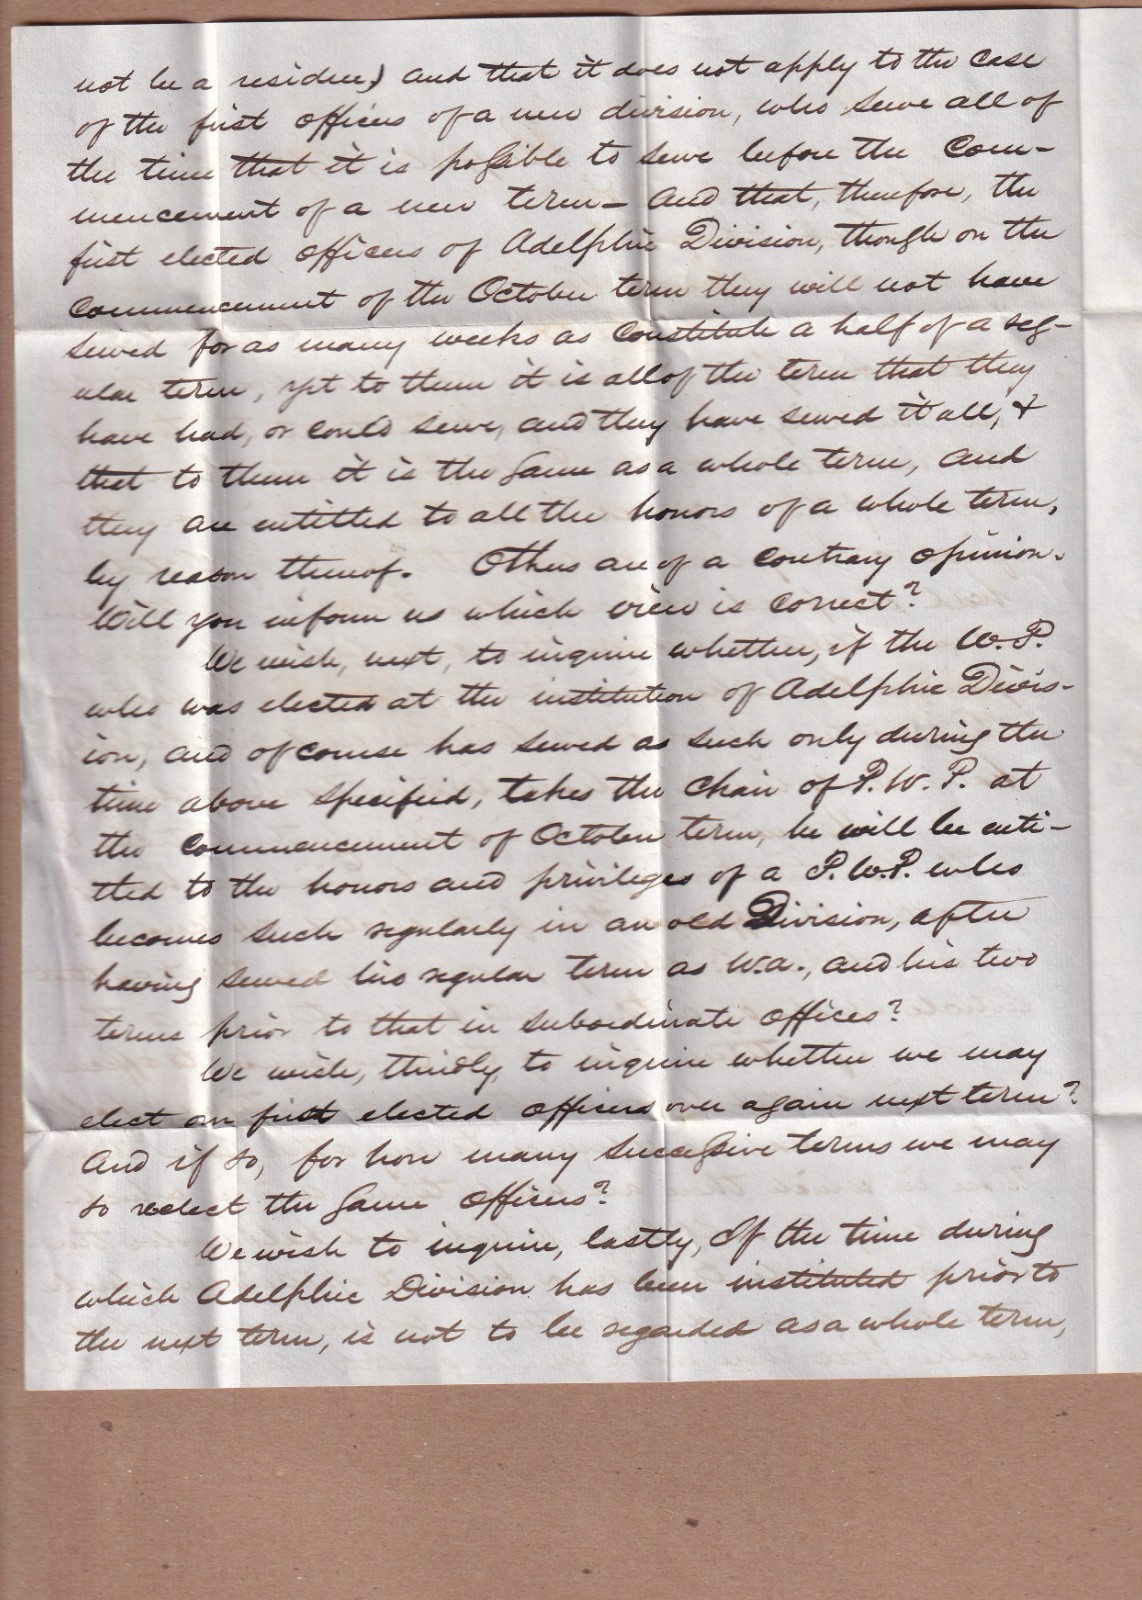 not be a residue) and that it does not apply to the case
of the first officers of a new division, who serve all of
the time that it is possible to serve before the com-
mencement of a new term – and that, therefore, the
first elected officers of Adelphic Division, though on the
commencement of the October term they will not have
served for as many weeks as constitute a half of a reg-
ular term, yet to them it is all of the term that they
have had, or could serve, and they have served it all, &
that to them it is the same as a whole term, and
they are entitled to all the honors of a whole term,
by reason thereof. Others are of a contrary opinion.
Will you inform us which view is correct?
We wish, next, to inquire whether, if the W.P.
who was elected at the institution of Adelphic Divis-
ion, and of course has served as such only during the
time above specified, takes the chair of P.W.P. at
the commencement of October term, he will be enti-
tled to the honors and privileges of a P.W.P. who
becomes such regularly in an old Division, after
having served his regular term as W.A., and his two
terms prior to that in subordinate offices?
We wish, thirdly, to inquire whether we may
elect our first elected officers over again next term?
And if so, for how many successive terms we may
so reelect the same officers?
We wish to inquire, lastly, If the time during
which Adelphic Division has been instituted prior to
the next term, is not to be regarded as a whole term,